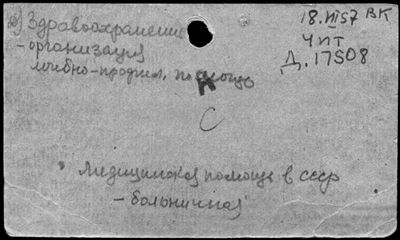 2) Здравоохранение
- организация
лечебно-профил. помощь
18.VII57 ВК
ЧПТ
Д.17508
С
Медицинская помощь в СССР
- больничная